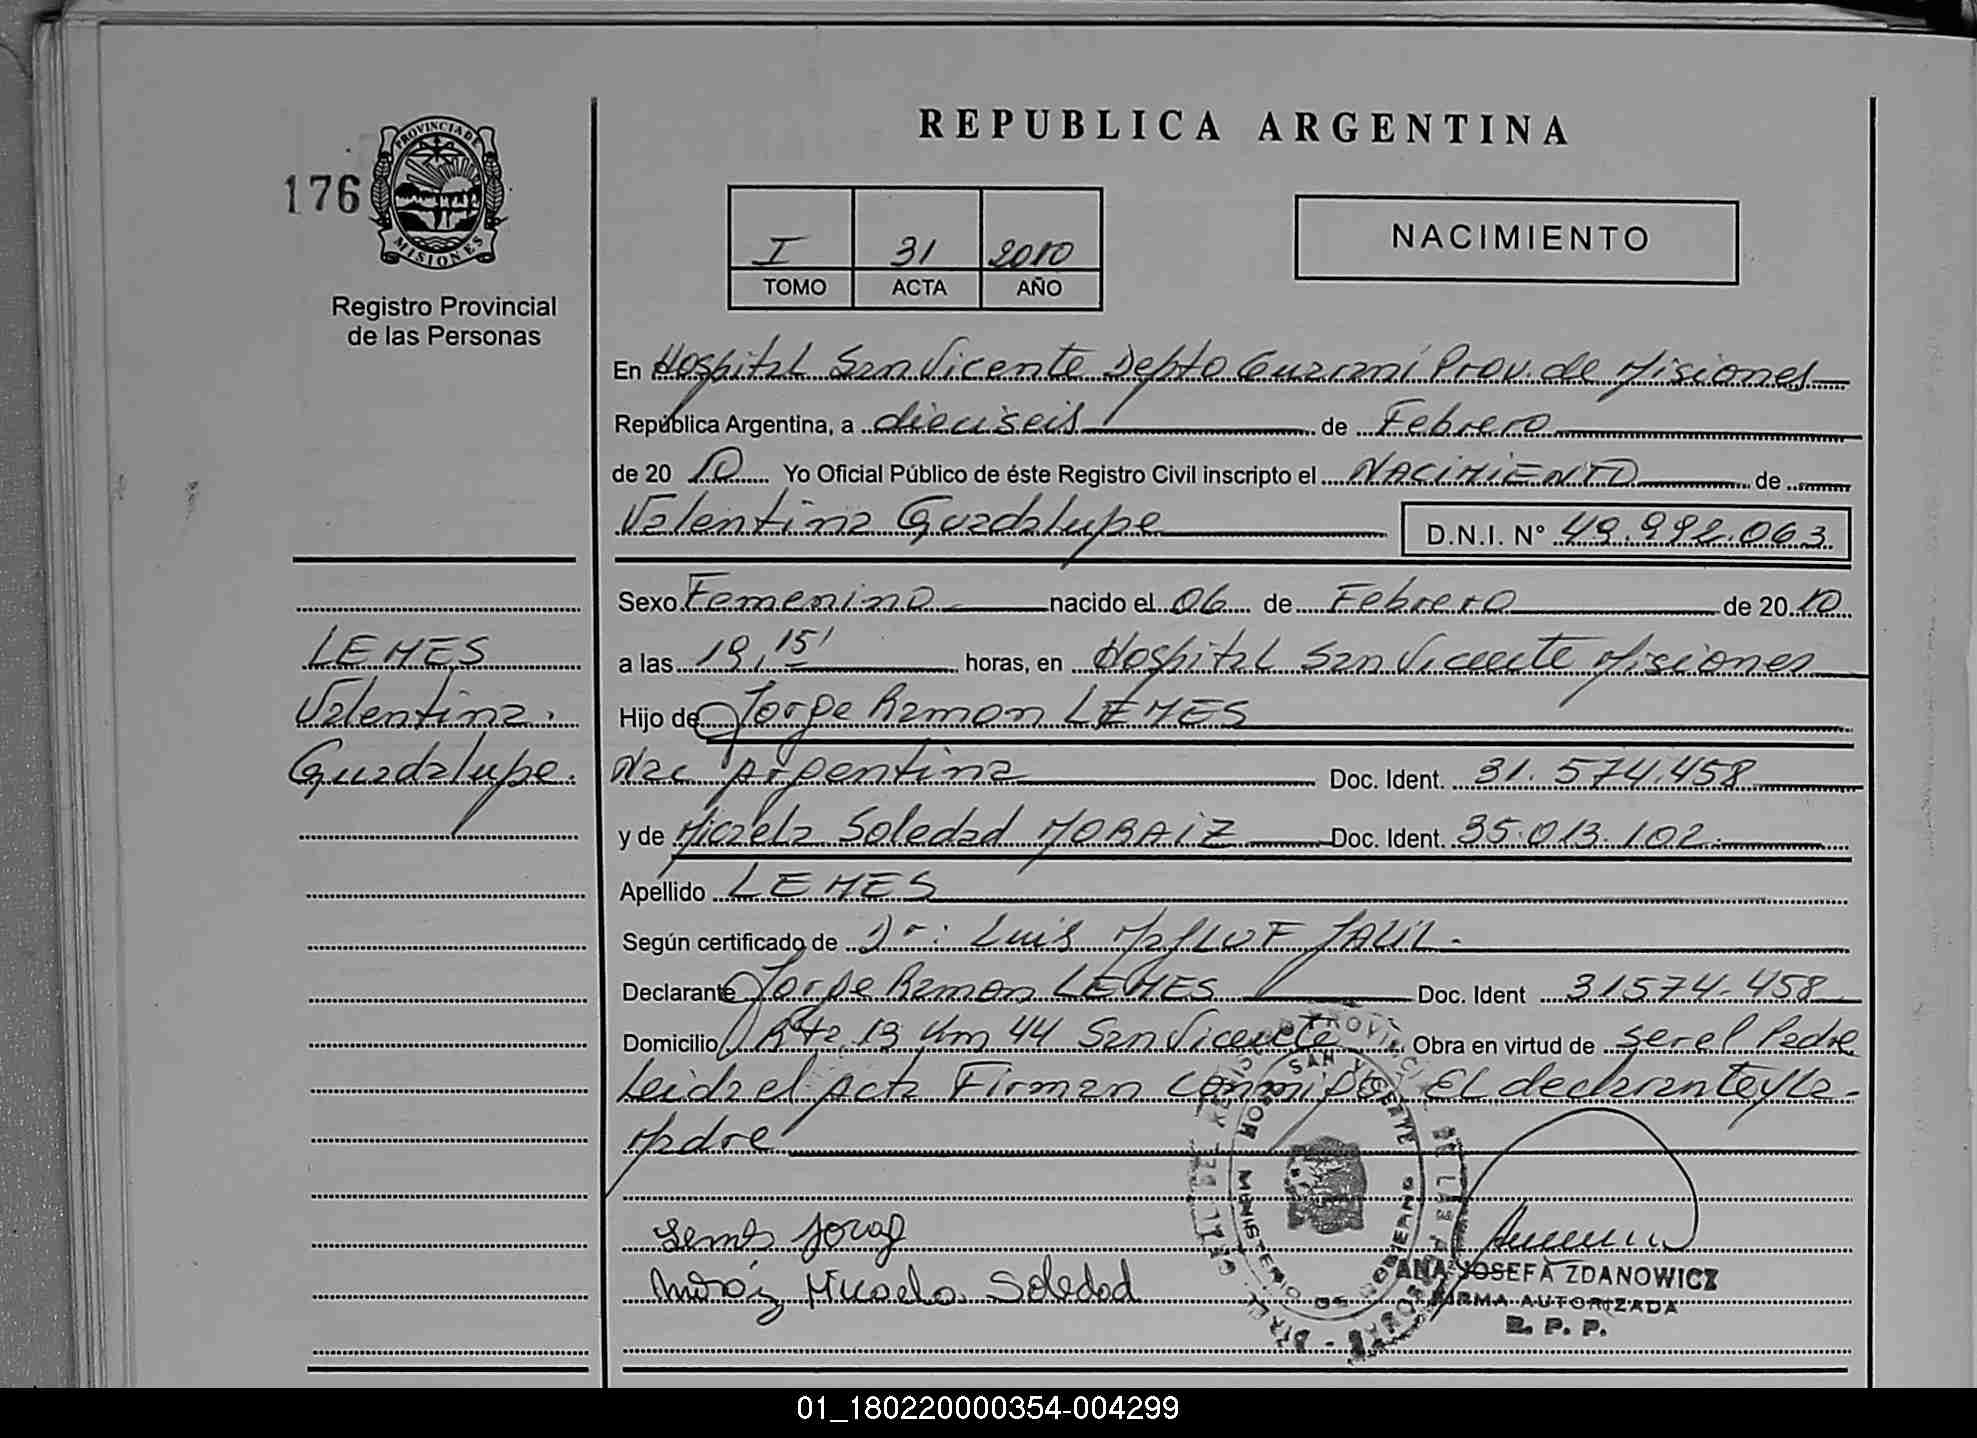 REPUBLICA ARGENTINA
176
PROVINCIA DE
MISIONES
Registro Provincial
de las Personas
I 31 2010
TOMO ACTA AÑO
NACIMIENTO
En Hospital San Vicente Depto Guarani Prov. de Misiones
República Argentina, a dieciseis de Febrero
de 20 10 Yo Oficial Público de éste Registro Civil inscripto el NACIMIENTO de
Valentina Guadalupe D.N.I. N° 49.992.063
Sexo Femenino nacido el 06 de Febrero de 20 10
LEMES
Valentina.
Guadalupe.
a las 19,15' horas, en Hospital San Vicente Misiones
Hijo de Jorge Ramon LEMES
Nac Argentina Doc. Ident. 31.574.458
y de Micaela Soledad MORAIZ Doc. Ident. 35.013.102
Apellido LEMES
Según certificado de Dr: Luis
Declarante Jorge Ramon LEMES Doc. Ident 31574.458
Domicilio Rta 13 Km 44 San Vicente Obra en virtud de ser el Padre
Leida el Acta Firman conmigo El declarante y la
Madre
Lemes Jorge
Moraiz Micaela Soledad
HOSP. SAN VICENTE
MINISTERIO DE GOBIERNO
ANA JOSEFA ZDANOWICZ
FIRMA AUTORIZADA
R. P. P.
01_180220000354-004299